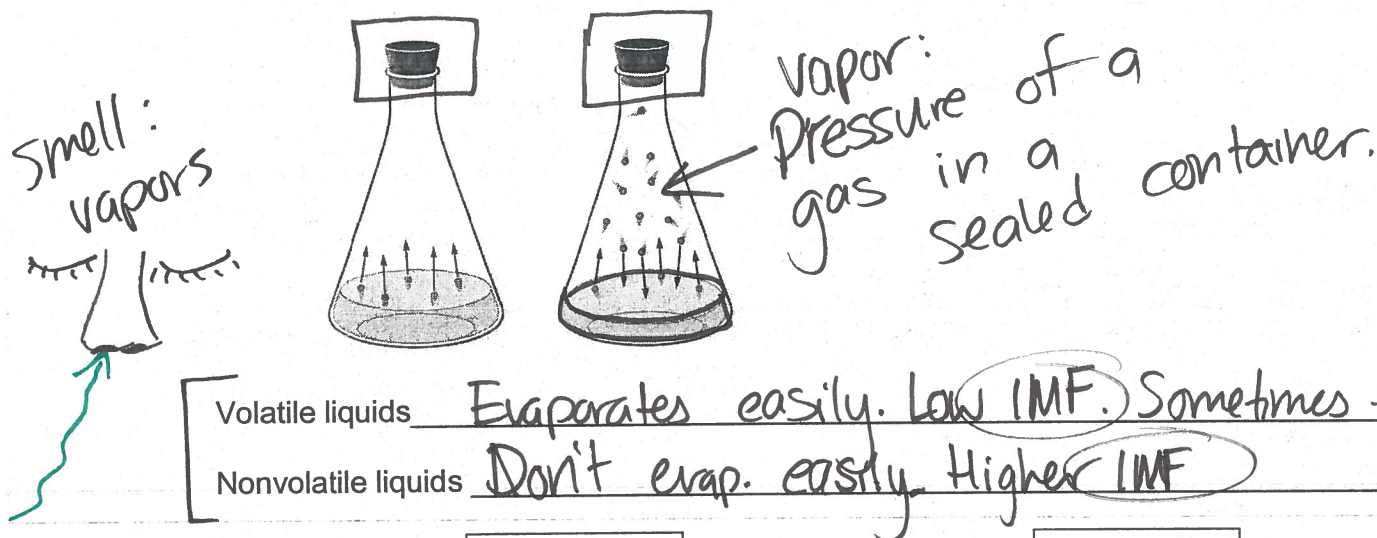 smell:
vapors
vapor:
Pressure of a
gas in a
sealed container.
Volatile liquids Evaporates easily. Low IMF. Sometimes
Nonvolatile liquids Don't evap. easily. Higher IMF